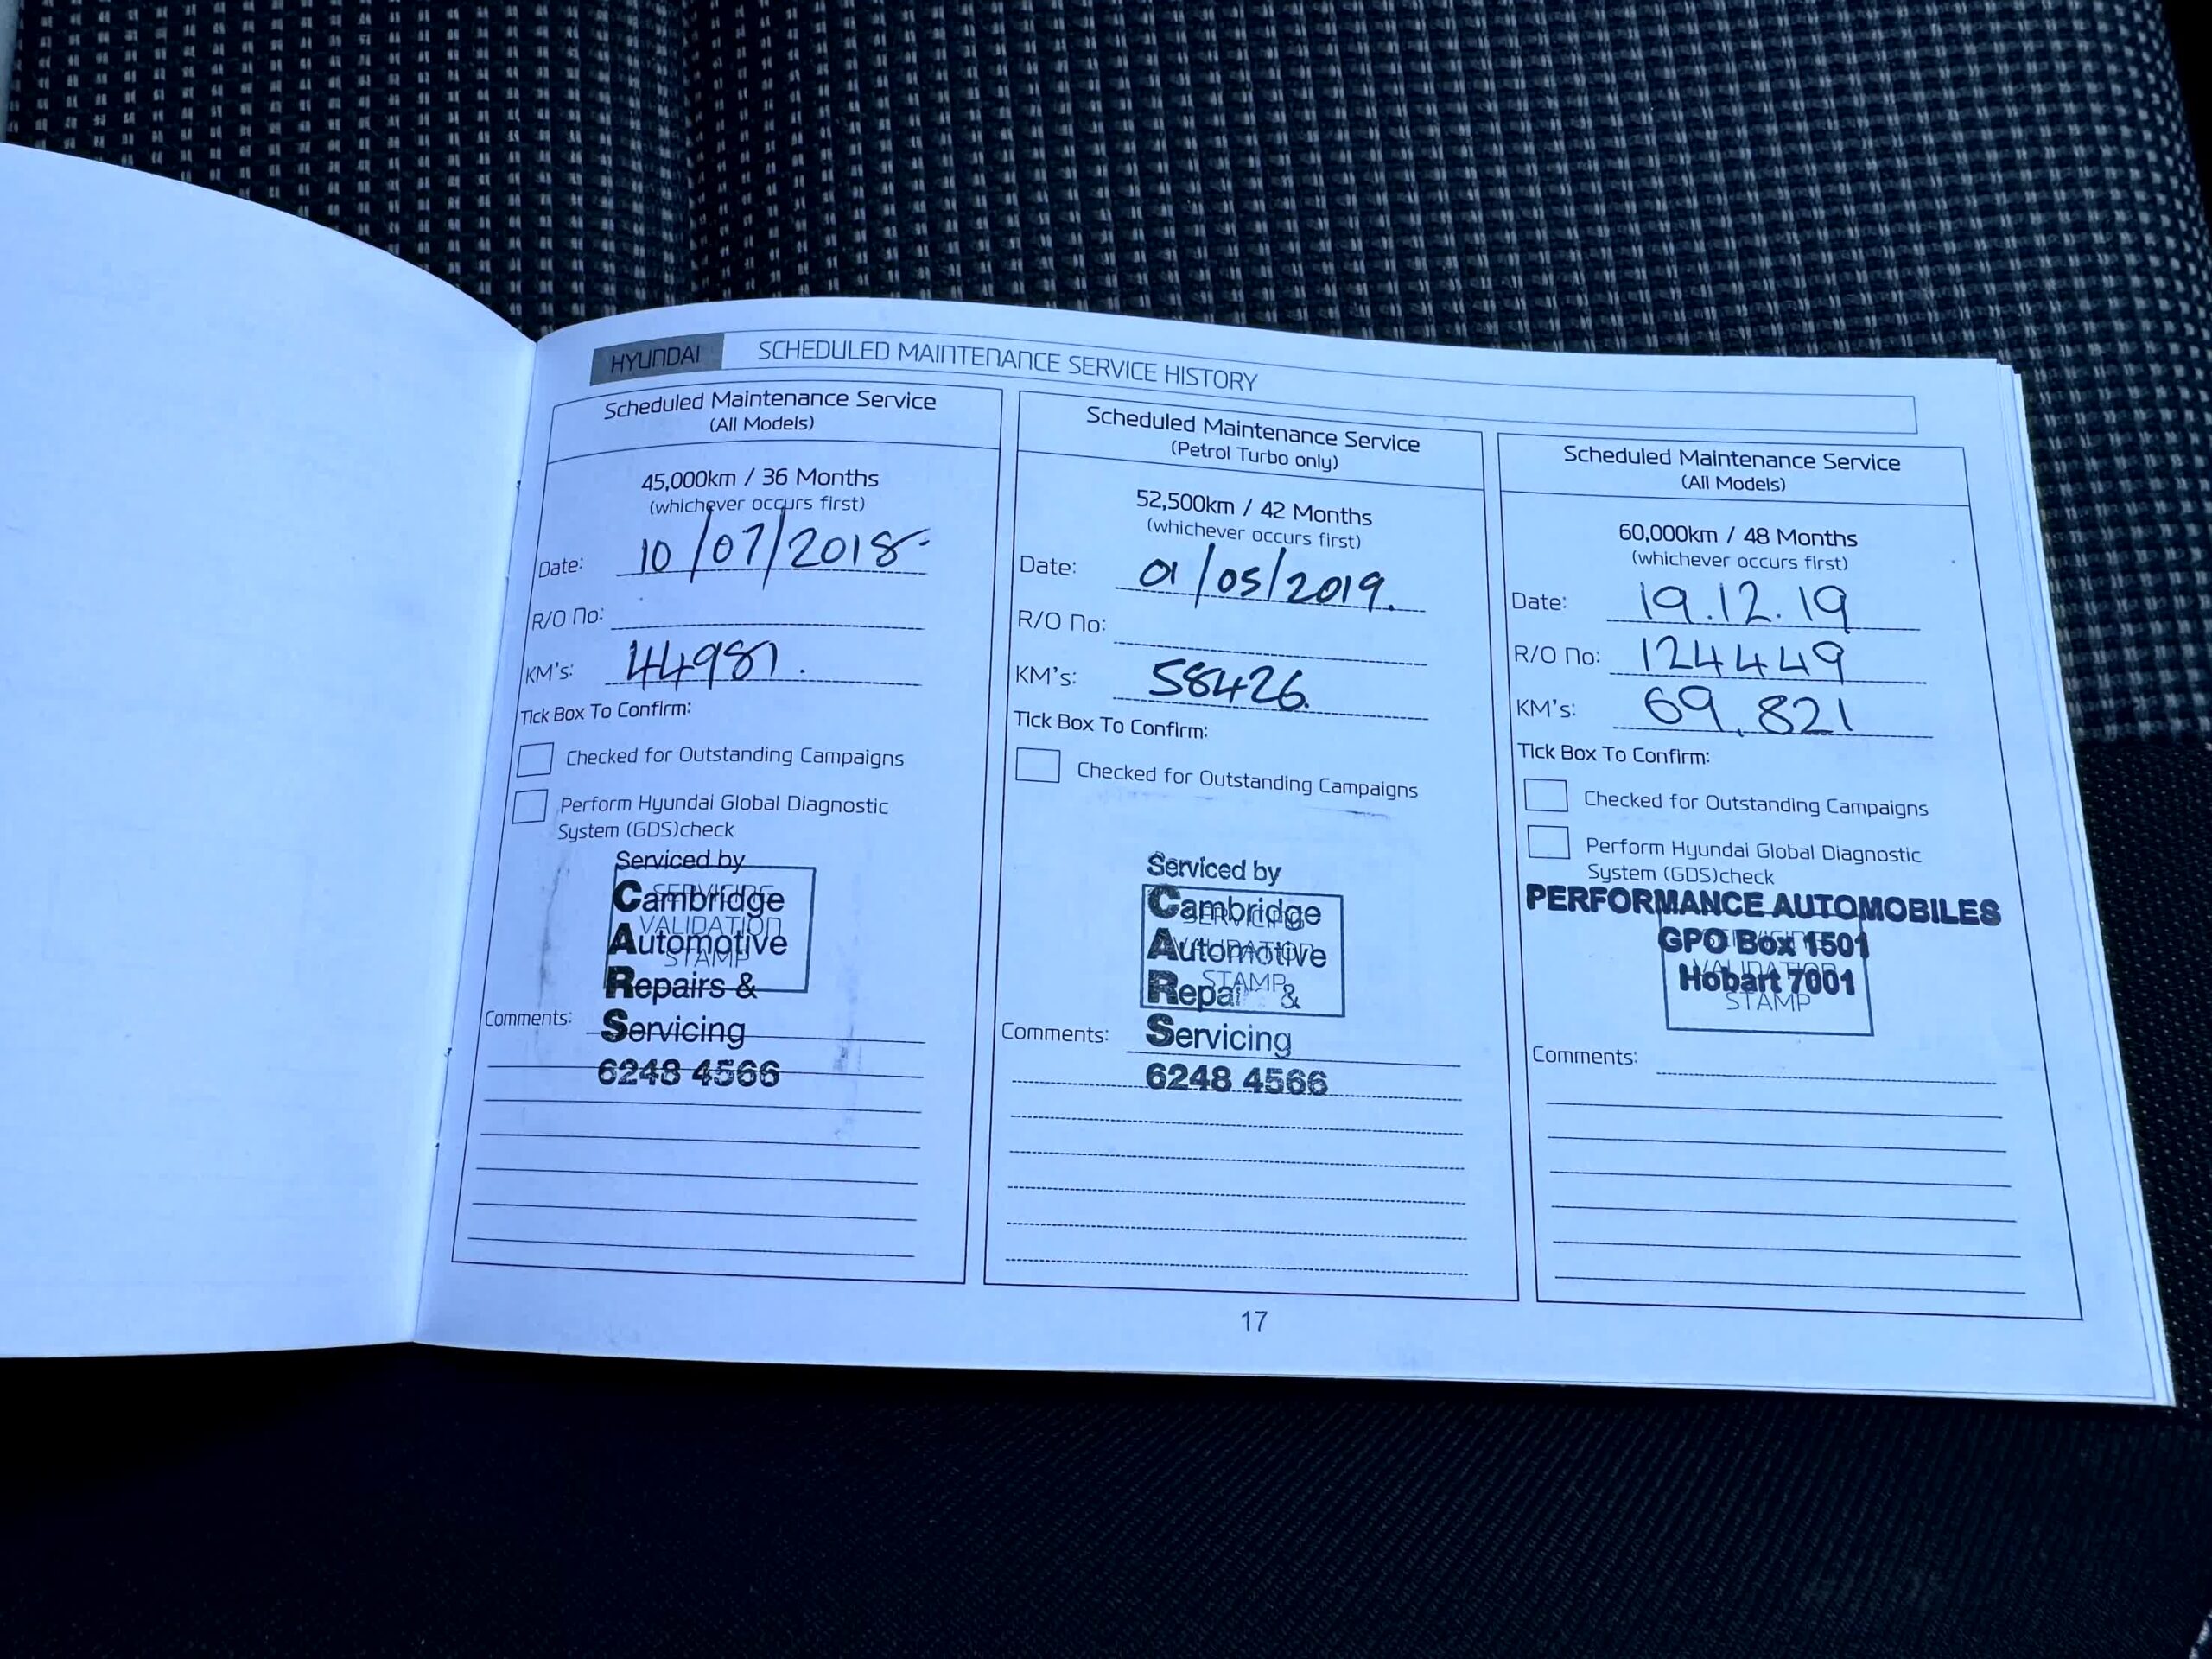 HYUNDAI SCHEDULED MAINTENANCE SERVICE HISTORY
Scheduled Maintenance Service
(All Models)
45,000km / 36 Months
(whichever occurs first)
Date: 10/07/2018
R/O No:
KM's: 44981.
Tick Box To Confirm:
Checked for Outstanding Campaigns
Perform Hyundai Global Diagnostic
System (GDS)check
Serviced by
Cambridge
Automotive
Repairs &
Servicing
6248 4566
SERVICING
VALIDATION
STAMP
Comments:
Scheduled Maintenance Service
(Petrol Turbo only)
52,500km / 42 Months
(whichever occurs first)
Date: 01/05/2019.
R/O No:
KM's: 58426.
Tick Box To Confirm:
Checked for Outstanding Campaigns
Serviced by
Cambridge
Automotive
Repai &
Servicing
6248 4566
SERVICING
VALIDATION
STAMP
Comments:
Scheduled Maintenance Service
(All Models)
60,000km / 48 Months
(whichever occurs first)
Date: 19.12.19
R/O No: 124449
KM's: 69,821
Tick Box To Confirm:
Checked for Outstanding Campaigns
Perform Hyundai Global Diagnostic
System (GDS)check
PERFORMANCE AUTOMOBILES
GPO Box 1501
Hobart 7001
VALIDATION
STAMP
Comments:
17